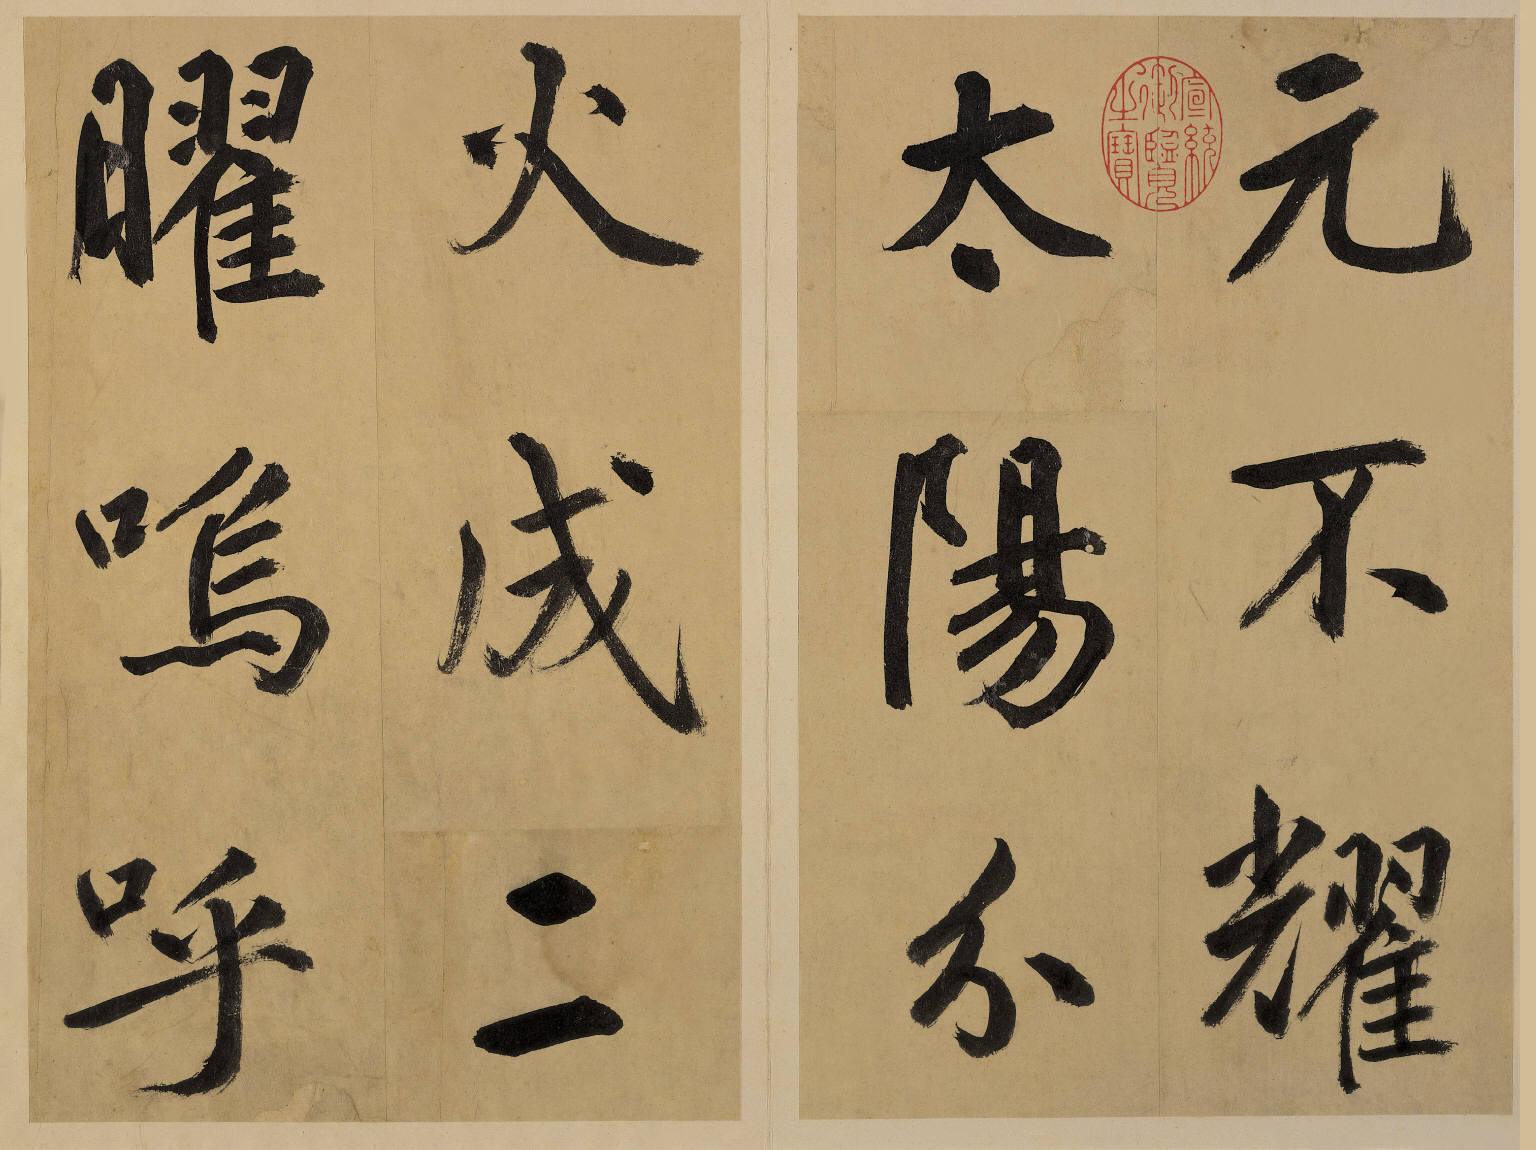 元不耀
宣統御覽之寶
太陽分
火成二
曜嗚呼